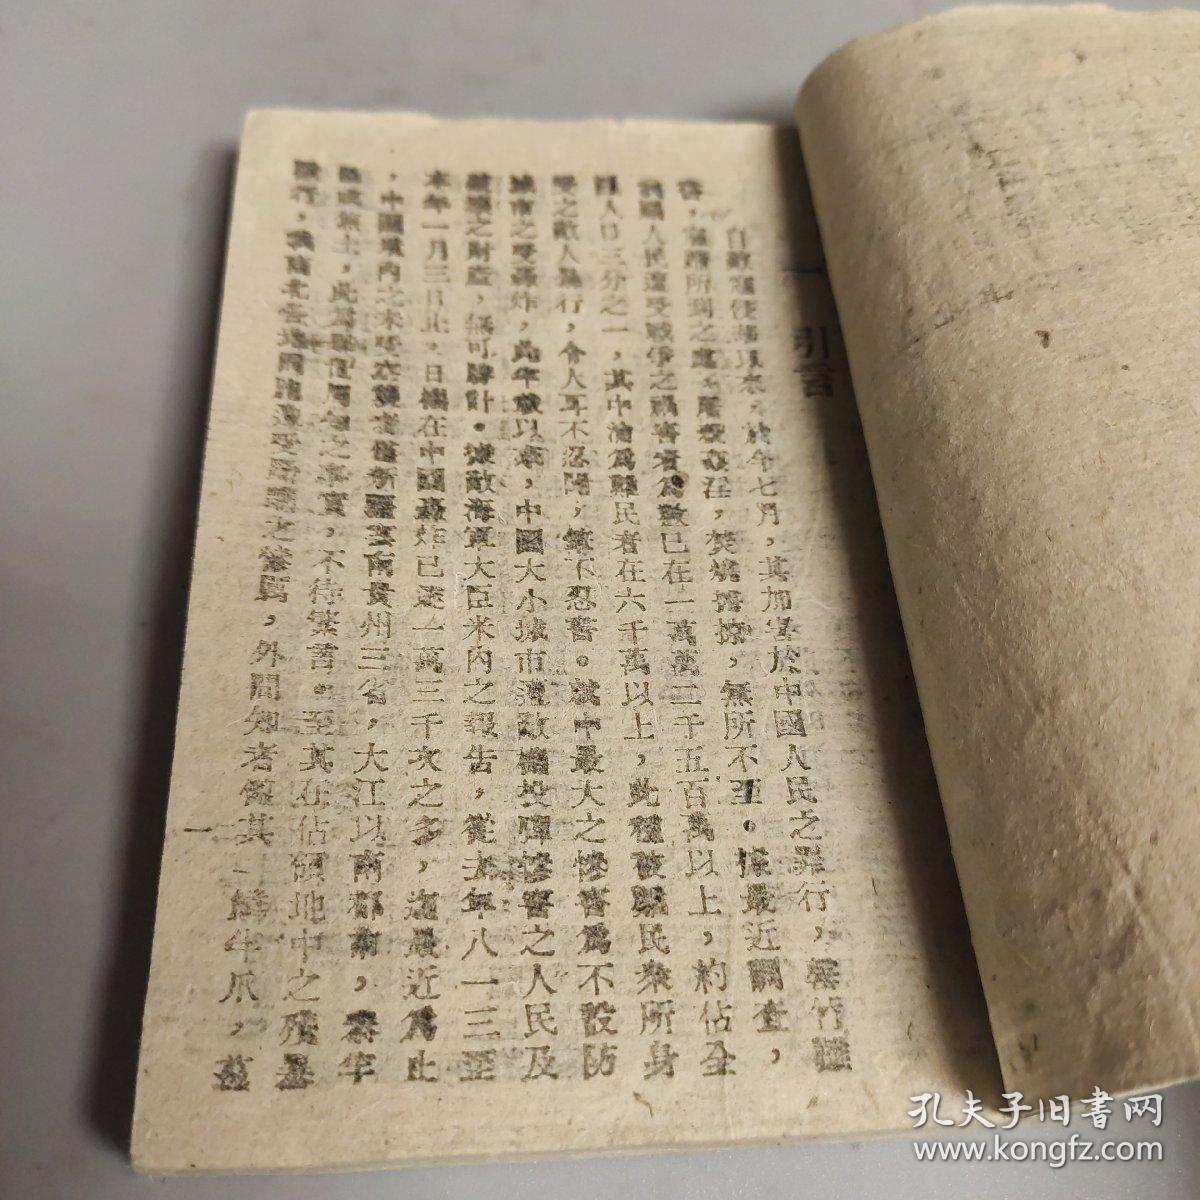 一 引言
自敵寇侵華以來，於今七月，其加害於中國人民之罪行，罄竹難
書，寇蹄所到之處，屠殺姦淫，焚燒擄掠，無所不至。據最近調查，
我國人民遭受戰爭之禍害者爲數已在一萬萬二千五百萬以上，約佔全
國人口三分之一，其中淪爲難民者在六千萬以上，此種被難民衆所身
受之敵人暴行，令人耳不忍聞，筆不忍書。就中最大之慘害爲不設防
城市之受轟炸，此年載以來，中國大小城市遭敵機投彈慘害之人民及
被毀之財產，無可勝計。據敵海軍大臣米內之報告，從去年八一三至
本年一月三日止，日機在中國轟炸已達一萬三千次之多，迄最近爲止
，中國域內之未受空襲者僅新疆雲南貴州三省，大江以南都市，泰半
爲成焦土，此爲 世周知之事實，不待繁言。至其在佔領地中之殘暴
獸行，我南北各地同胞遭受 之慘厲，外間知者僅其一鱗半爪，蓋
一
孔夫子旧书网
www.kongfz.com